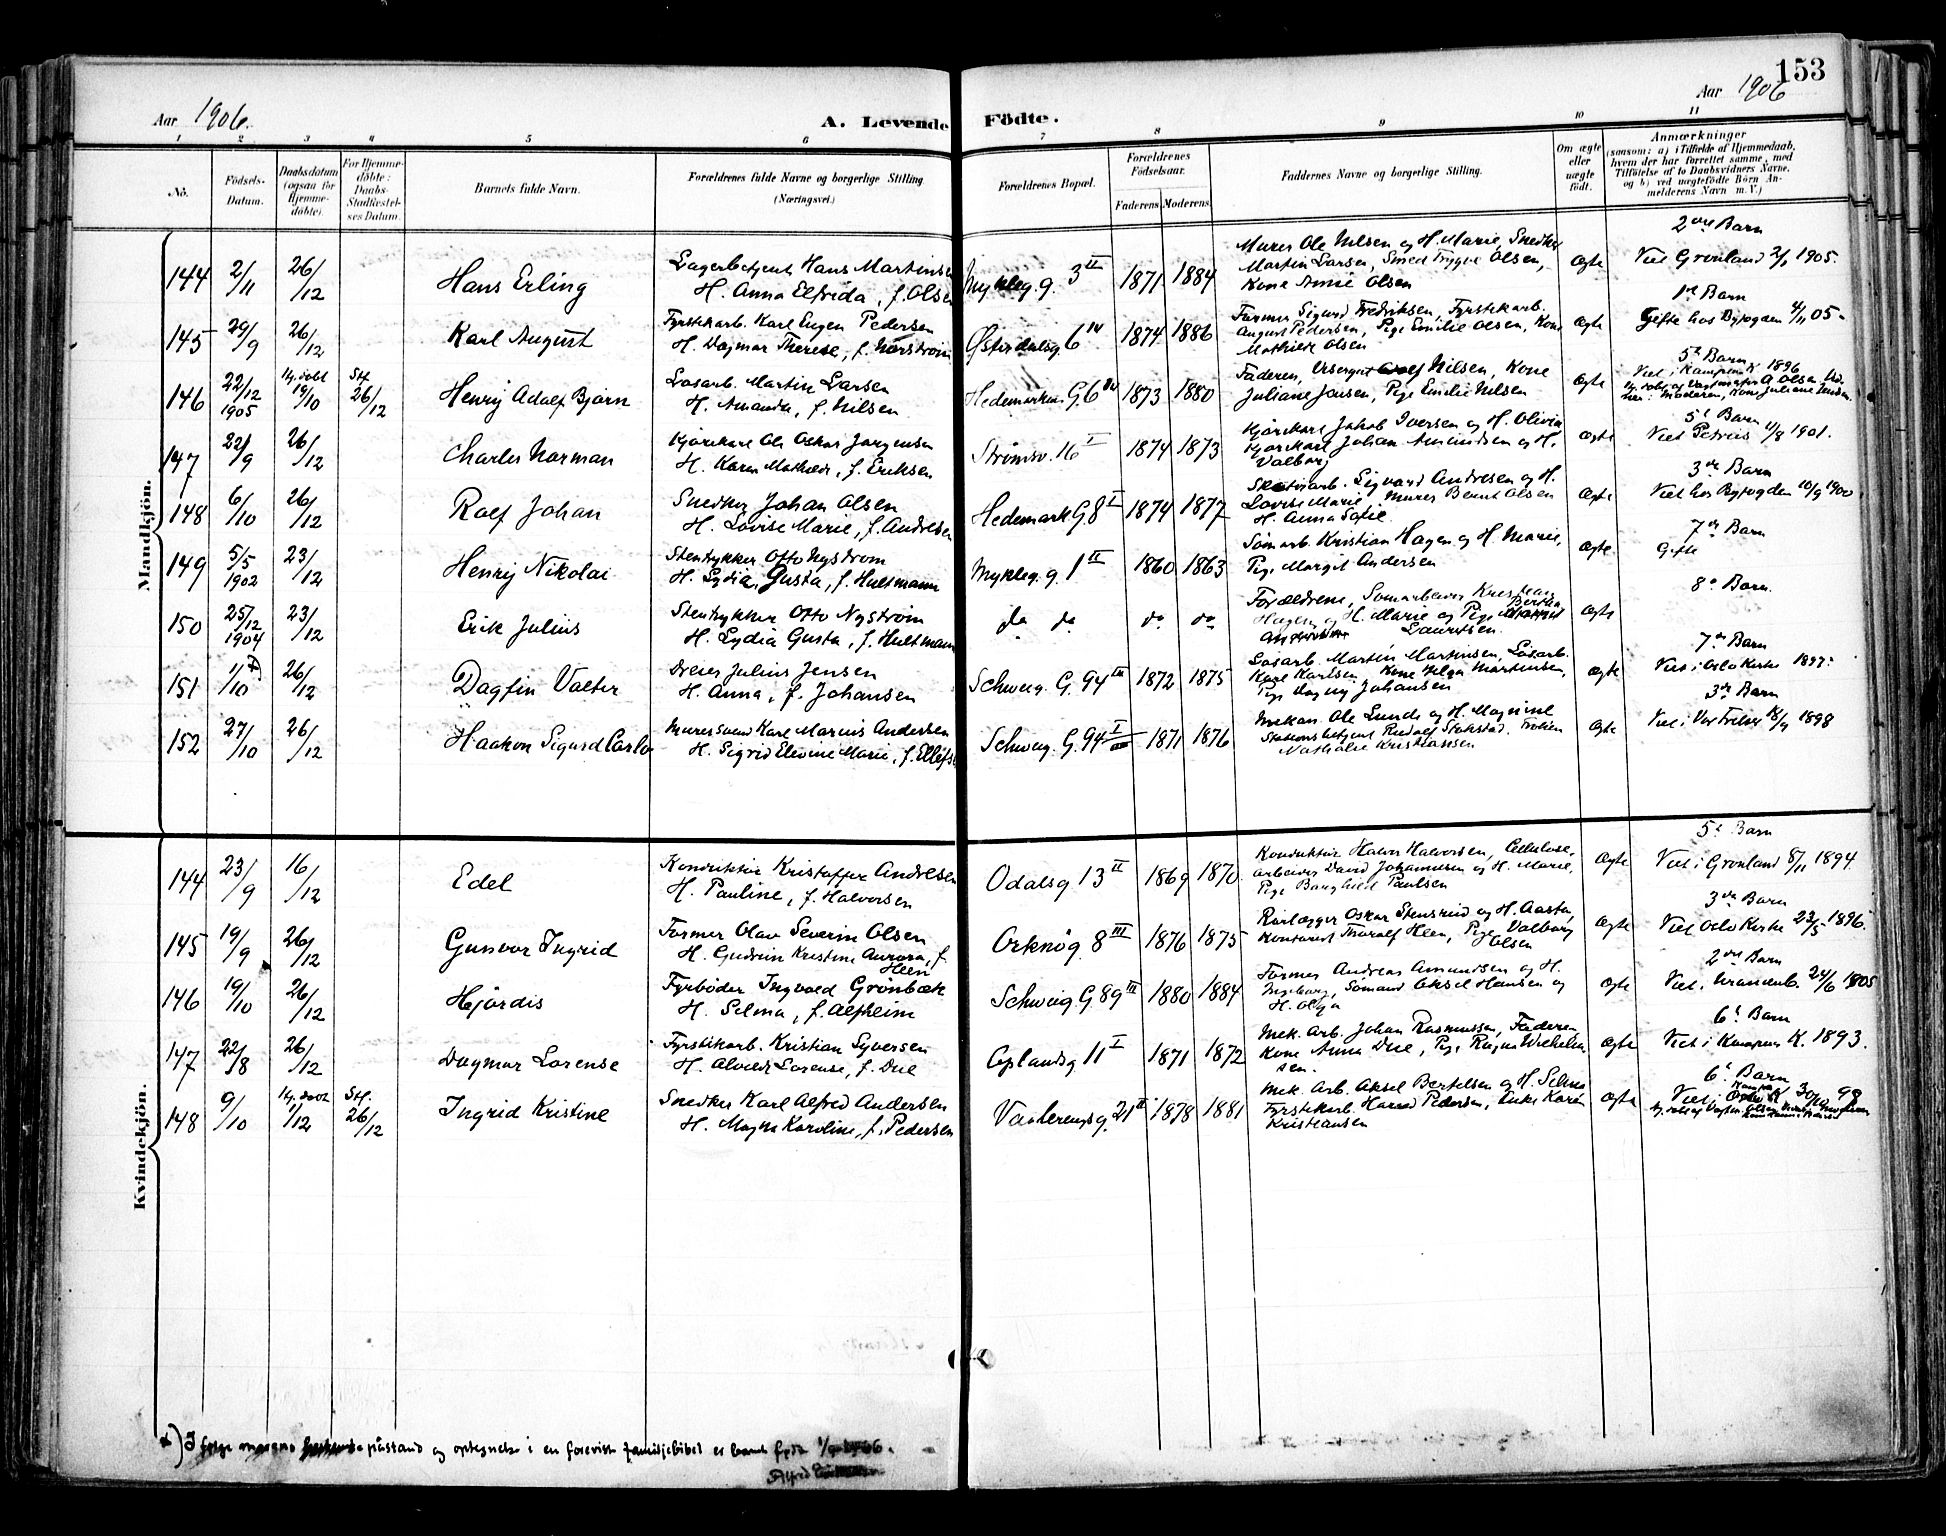 153
Aar 1906.
A. Levende Födte.
Aar 1906
1 2 3 4 5 6 7 8 9 10 11
No.
Födsels-Datum.
Daabsdatum (ogsaa for Hjemme-döbte).
For Hjemme-döbte: Daabs-Stadfæstel-ses Datum.
Barnets fulde Navn.
Forældrenes fulde Navne og borgerlige Stilling
(Næringsvei.)
Forældrenes Bopæl.
Forældrenes Födselsaar.
Faderens Moderens
Faddernes Navne og borgerlige Stilling.
Om ægte eller uægte födt.
Anmærkninger
(saasom: a) i Tilfælde af Hjemmedaab,
hvem der har forrettet samme, med
Tilföielse af to Daabsvidners Navne,
og b) ved uægtefödte Börn An-
melderens Navn m. V.)
Mandkjön.
144 2/11 26/12 Hans Erling
Lagerbetjent Hans Martinsen
H. Anna Elfrida, f. Olsen
Mykleg. 9. 3 II 1871 1884
Murer Ole Nilsen og H. Marie, Snedker
Martin Larsen, Smed Trygve Olsen,
Kone Amie Olsen
Ægte
2det Barn
Viet Grønland 2/1 1905.
145 29/9 26/12 Karl August
Fyrstikarb. Karl Eugen Pedersen
H. Dagmar Therese, f. Nørstrøm
Østerdalsg. 6 IV 1874 1886
Former Sigurd Fredriksen, Fyrstikarb.
August Pedersen, Pige Emilie Olsen, Kone
Mathilde Olsen
Ægte
1ste Barn
Gifte hos Byfogden 4/11 05.
146 22/12 1905 Hj. døbt 19/10 Stf. 26/12 Henry Adolf Bjørn
Løsarb. Martin Larsen
H. Amanda, f. Nilsen
Hedemarken G. 6 IV 1873 1880
Faderen, Nilsen, Kone
Juliane Jensen, Pige Emilie Nilsen
Ægte
5te Barn
Viet i Kampen K. 1896
147 22/9 26/12 Charles Norman
Kjørekarl Ole Oskar Jørgensen
H. Karen Mathilde, f. Eriksen
Strømsv. 16 I 1874 1873
Kjørekarl Jakob Iversen og H. Olivia
Kjørekarl Johan Amundsen og H.
Valborg
Ægte
5te Barn
Viet Petrus 11/8 1901.
148 6/10 26/12 Rolf Johan
Snedker Johan Olsen
H. Lovise Marie, f. Andresen
Hedemark G. 8 I 1874 1877
Sigvard Andresen og H.
Lovise Marie, Murer Bernt Olsen
H. Anna Sofie
Ægte
3die Barn
Viet hos Byfogden 10/9 1900
149 5/5 1902 23/12 Henry Nikolai
Stentrykker Otto Nystrøm
H. Lydia Gusta, f. Hultmann
Mykleg. 9. 1 II 1860 1863
Sømarb. Kristian Hagen og H. Marie,
Pige Margit Andersen
Ægte
7de Barn
Gifte
150 25/12 1904 23/12 Erik Julius
Stentrykker Otto Nystrøm
H. Lydia Gusta, f. Hultmann
do do do do
Forældrene, Sømarbeider Kristian
Hagen og H. Marie og Pige
Lauritsen.
Ægte
8de Barn.
151 11/10 26/12 Dagfin Valter
Dreier Julius Jensen
H. Anna, f. Johansen
Schweig. G. 94 III 1872 1875
Løsarb. Martin Martinsen, Løsarb.
Kare Karlsen, Kone Helga Martinsen,
Pige Dagny Johansen
Ægte
7de Barn
Viet i Oslo Kirke 1897.
152 27/10 26/12 Haakon Sigurd Carlo
Murersvend Karl Marius Andersen
H. Sigrid Elevine Marie, f. Ellefs
Schweig. G. 94 I 1871 1876
Mekan. Ole Lunde og H. Magnine
Stationsbetjent Rudolf Stokstad, Frøken
Nathalie Kristiansen
Ægte
3die Barn
Viet i Vor Frelser 18/4 1898
Kvindekjön.
144 23/9 16/12 Edel
Konduktør Kristoffer Andresen
H. Pauline, f. Halvorsen
Odalsg. 13 II 1869 1870
Konduktør Halvor Halvorsen, Cellulose-
arbeider David Johannesen og H. Marie,
Pige Borghild Paulsen
Ægte
5te Barn
Viet i Grønland 8/11 1894.
145 19/9 26/12 Gunvor Ingrid
Former Olav Severin Olsen
H. Gudrun Kristine Aurora, f.
Heen
Orknøg. 8 III 1876 1875
Rørlægger Oskar Stensrud og H. Aasta,
Kontorist Thoralf Heen, Pige Valborg
Olsen
Ægte
3die Barn
Viet Oslo Kirke 23/5 1896.
146 19/10 26/12 Hjørdis
Fyrbøder Ingvald Grønbæk
H. Selma, f. Alfheim
Schweig. G. 89 III 1880 1884
Former Andreas Amundsen og H.
Ingeborg, Sømand Aksel Hansen og
H. Olga
Ægte
2det Barn
Viet i Uranienb. 24/6 1905
147 22/8 26/12 Dagmar Lorense
Fyrstikarb. Kristian Syversen
H. Alvilde Lorense, f. Due
Oplandsg. 11 I 1871 1872
Mek. Arb. Johan Rasmussen, Faderen,
Kone Anna Due, Pige Ragna Wilhelm-
sen.
Ægte
6te Barn
Viet i Kampen K. 1893.
148 9/10 Hj. døbt 1/12 Stf. 26/12 Ingrid Kristine
Snedker Karl Alfred Andersen
H. Magna Karoline, f. Pedersen
Vaalerengg. 21 II 1878 1881
Mek. Arb. Aksel Bertelsen og H. Selma
Fyrstikarb. Harald Pedersen, Enke Karen
Kristiansen
Ægte
6te Barn
Viet i 30/10 98
*) I følge morens påstand og optegnelse i en forevist familjebibel er barnet født
Alfred